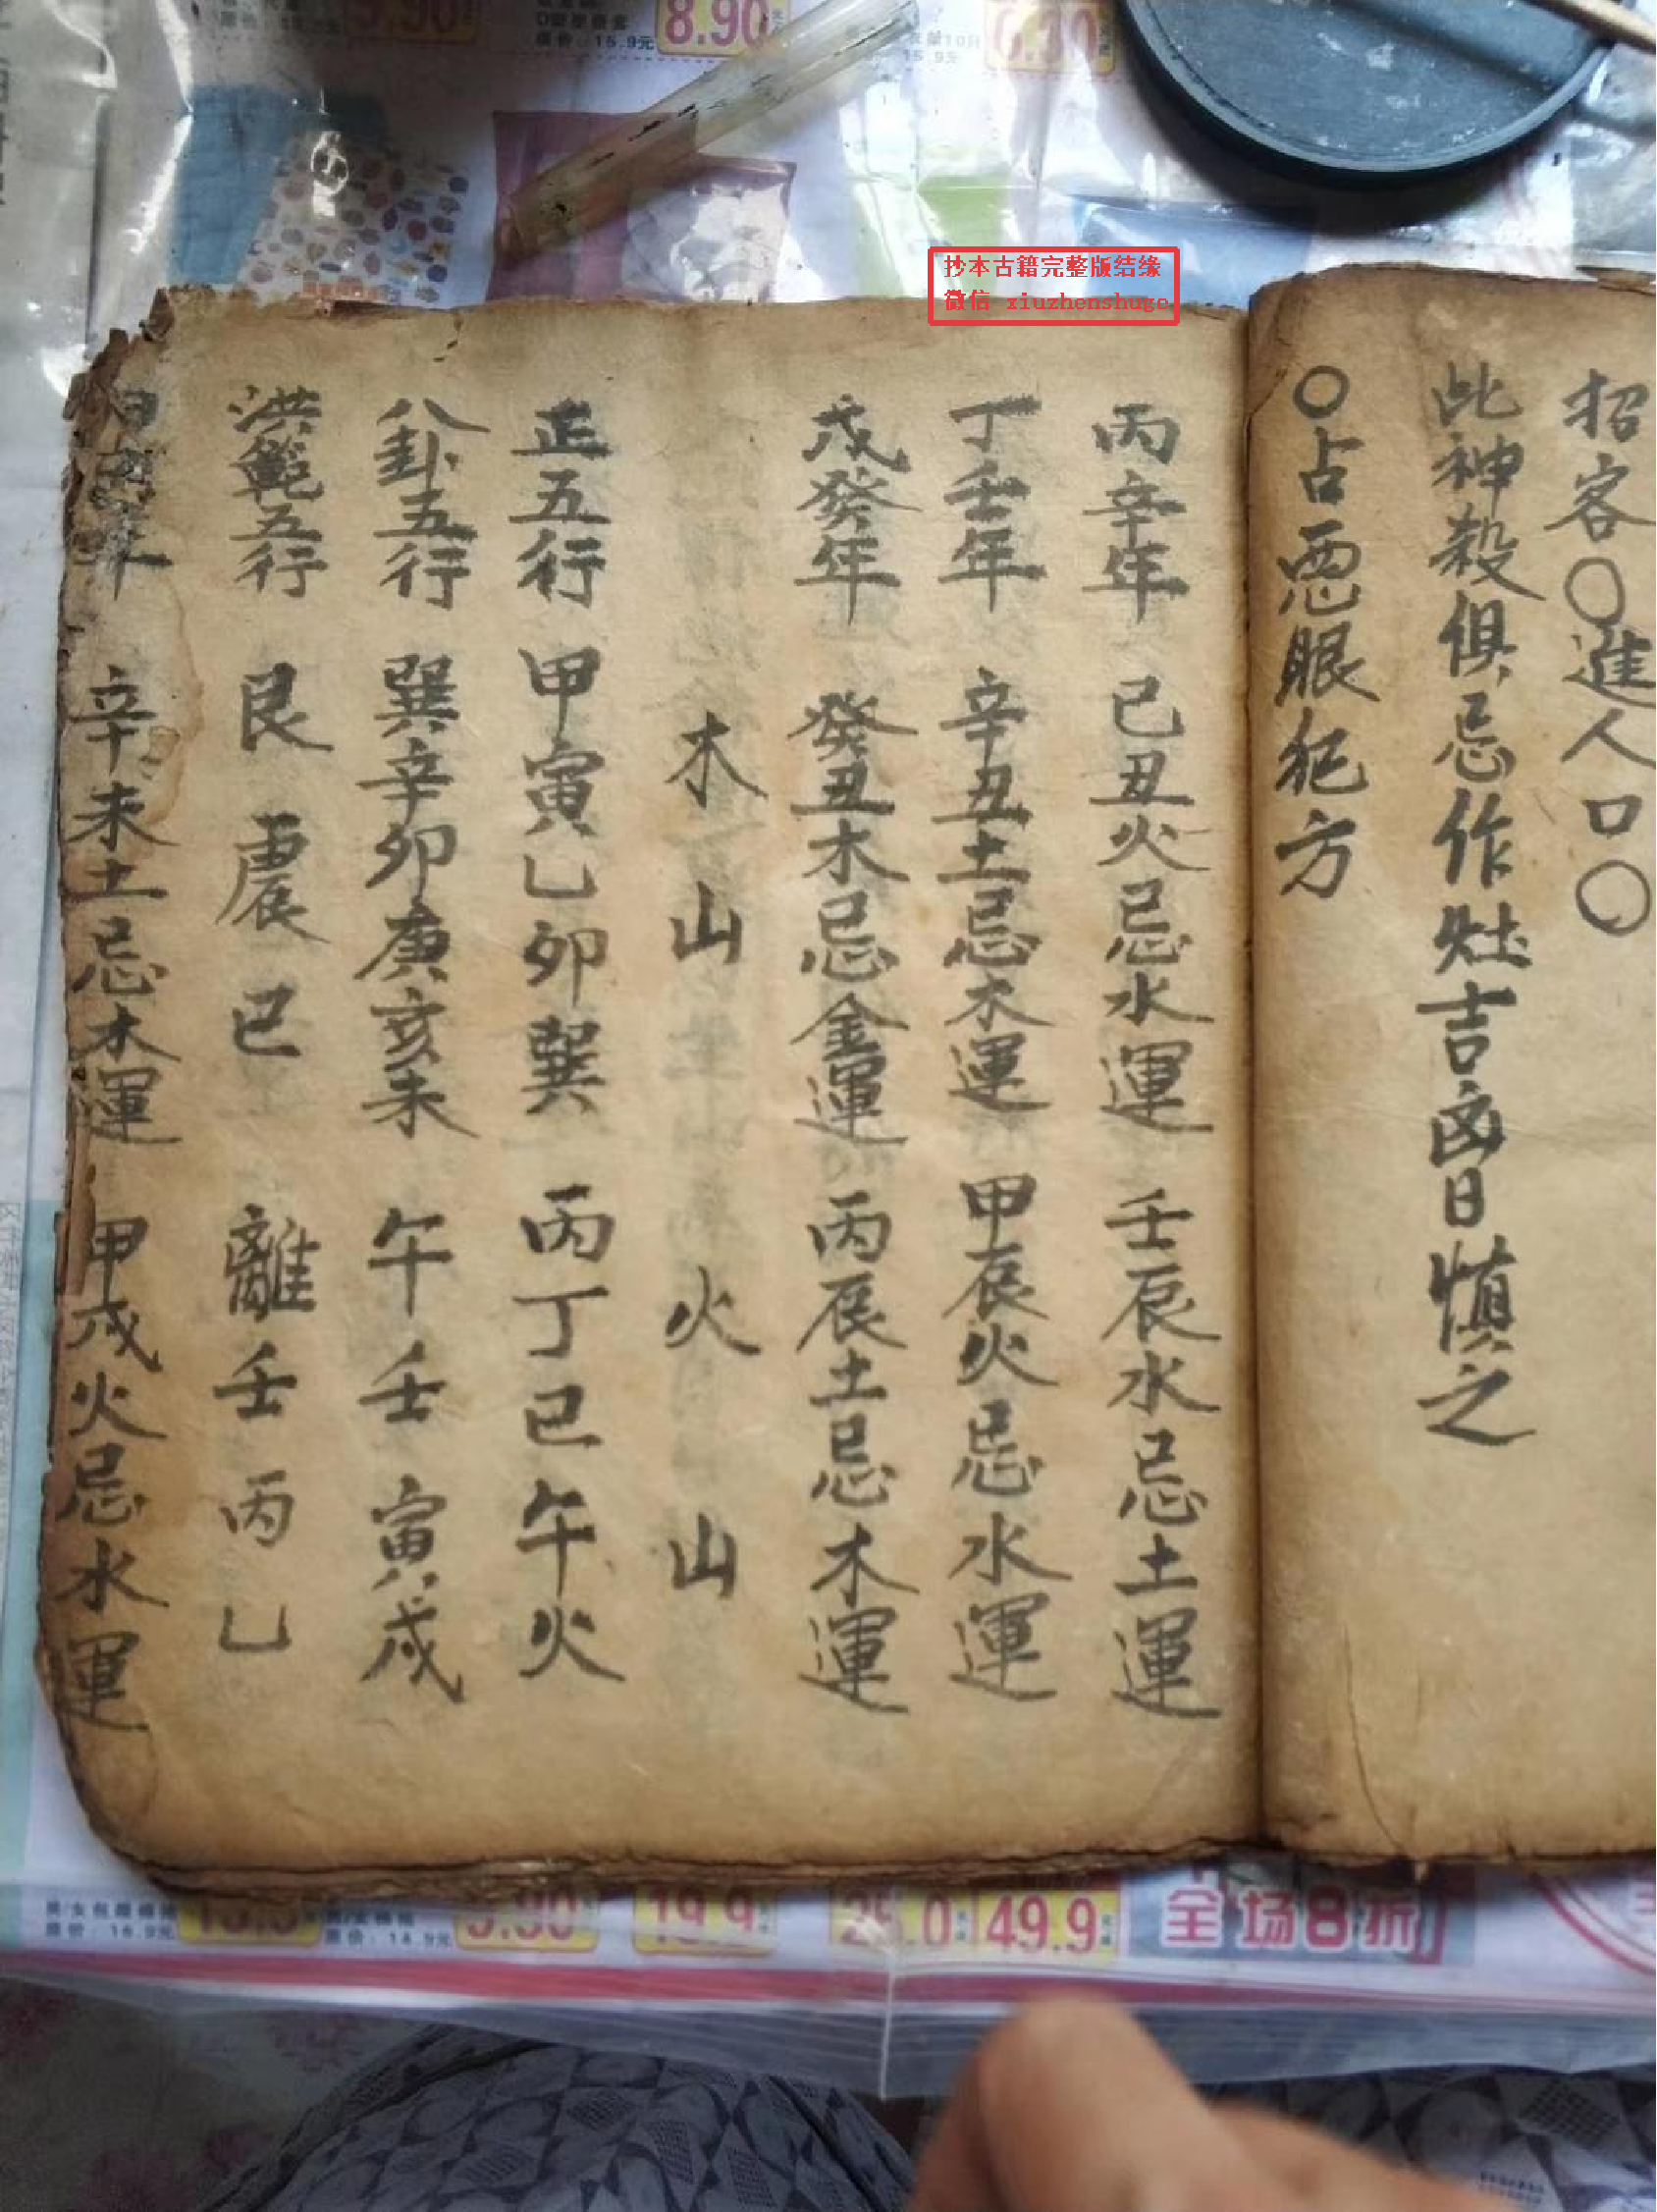 招客〇進人口〇
此神殺俱忌作灶吉凶日慎之
〇占恶眼犯方
丙辛年 已丑火忌水運 壬辰水忌土運
丁壬年 辛丑土忌木運 甲辰火忌水運
戊癸年 癸丑木忌金運 丙辰土忌木運
木山 火山
正五行 甲寅乙卯巽 丙丁已午火
八卦五行 巽辛卯庚亥未 午壬寅戌
洪範五行 艮震已 離壬丙乙
年 辛未土忌木運 甲戌火忌水運
抄本古籍完整版结缘
微信 xiuzhenshuge
8.90
原价：15.9元
6.30
15.9元
原价：16.9元
原价：14.9元
9.90
19.9
25.0
49.9
全场8折